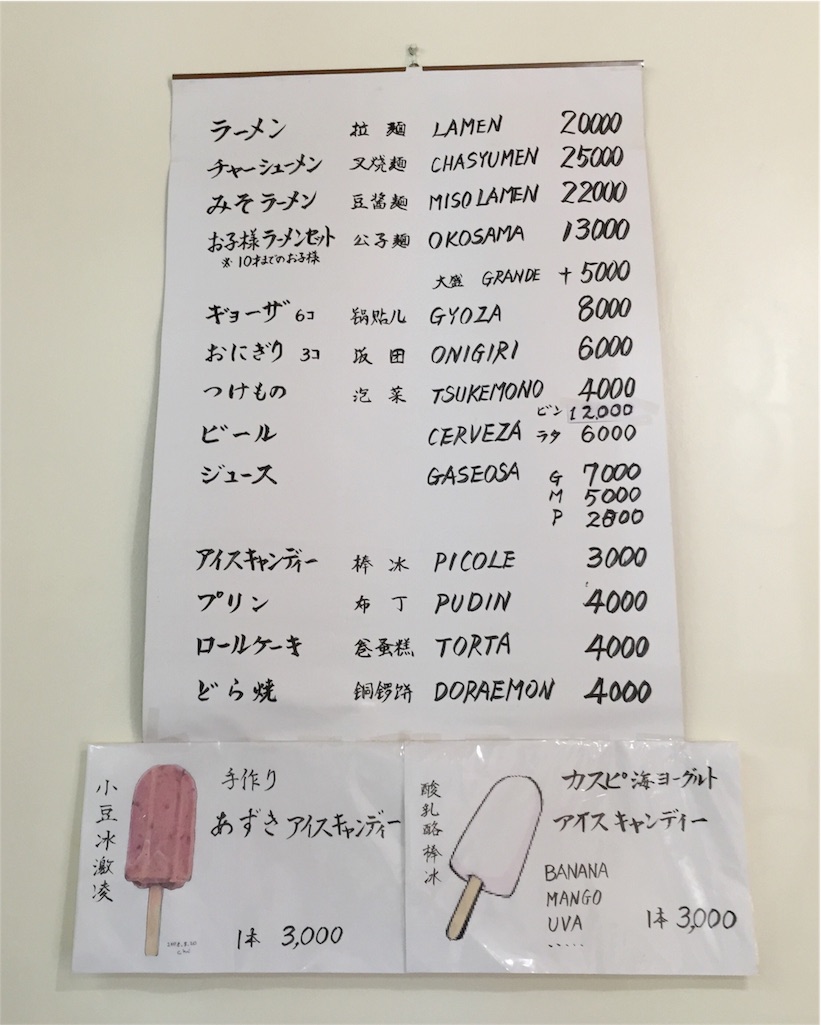 ラーメン 拉麺 LAMEN 20000
チャーシューメン 叉焼麺 CHASYUMEN 25000
みそラーメン 豆醤麺 MISO LAMEN 22000
お子様ラーメンセット 公子麺 OKOSAMA 13000
※10才までのお子様
大盛 GRANDE +5000
ギョーザ 6コ 锅贴儿 GYOZA 8000
おにぎり 3コ 版团 ONIGIRI 6000
つけもの 泡菜 TSUKEMONO 4000
ビン 12,000
ビール CERVEZA ラタ 6000
ジュース GASEOSA G 7000
M 5000
P 2800
アイスキャンディー 棒冰 PICOLE 3000
プリン 布丁 PUDIN 4000
ロールケーキ 卷蛋糕 TORTA 4000
どら焼 铜锣饼 DORAEMON 4000
小豆冰激凌
手作り
あずきアイスキャンディー
1本 3,000
酸乳酪棒冰
カスピ海ヨーグルト
アイスキャンディー
BANANA
MANGO
UVA
.....
1本 3,000